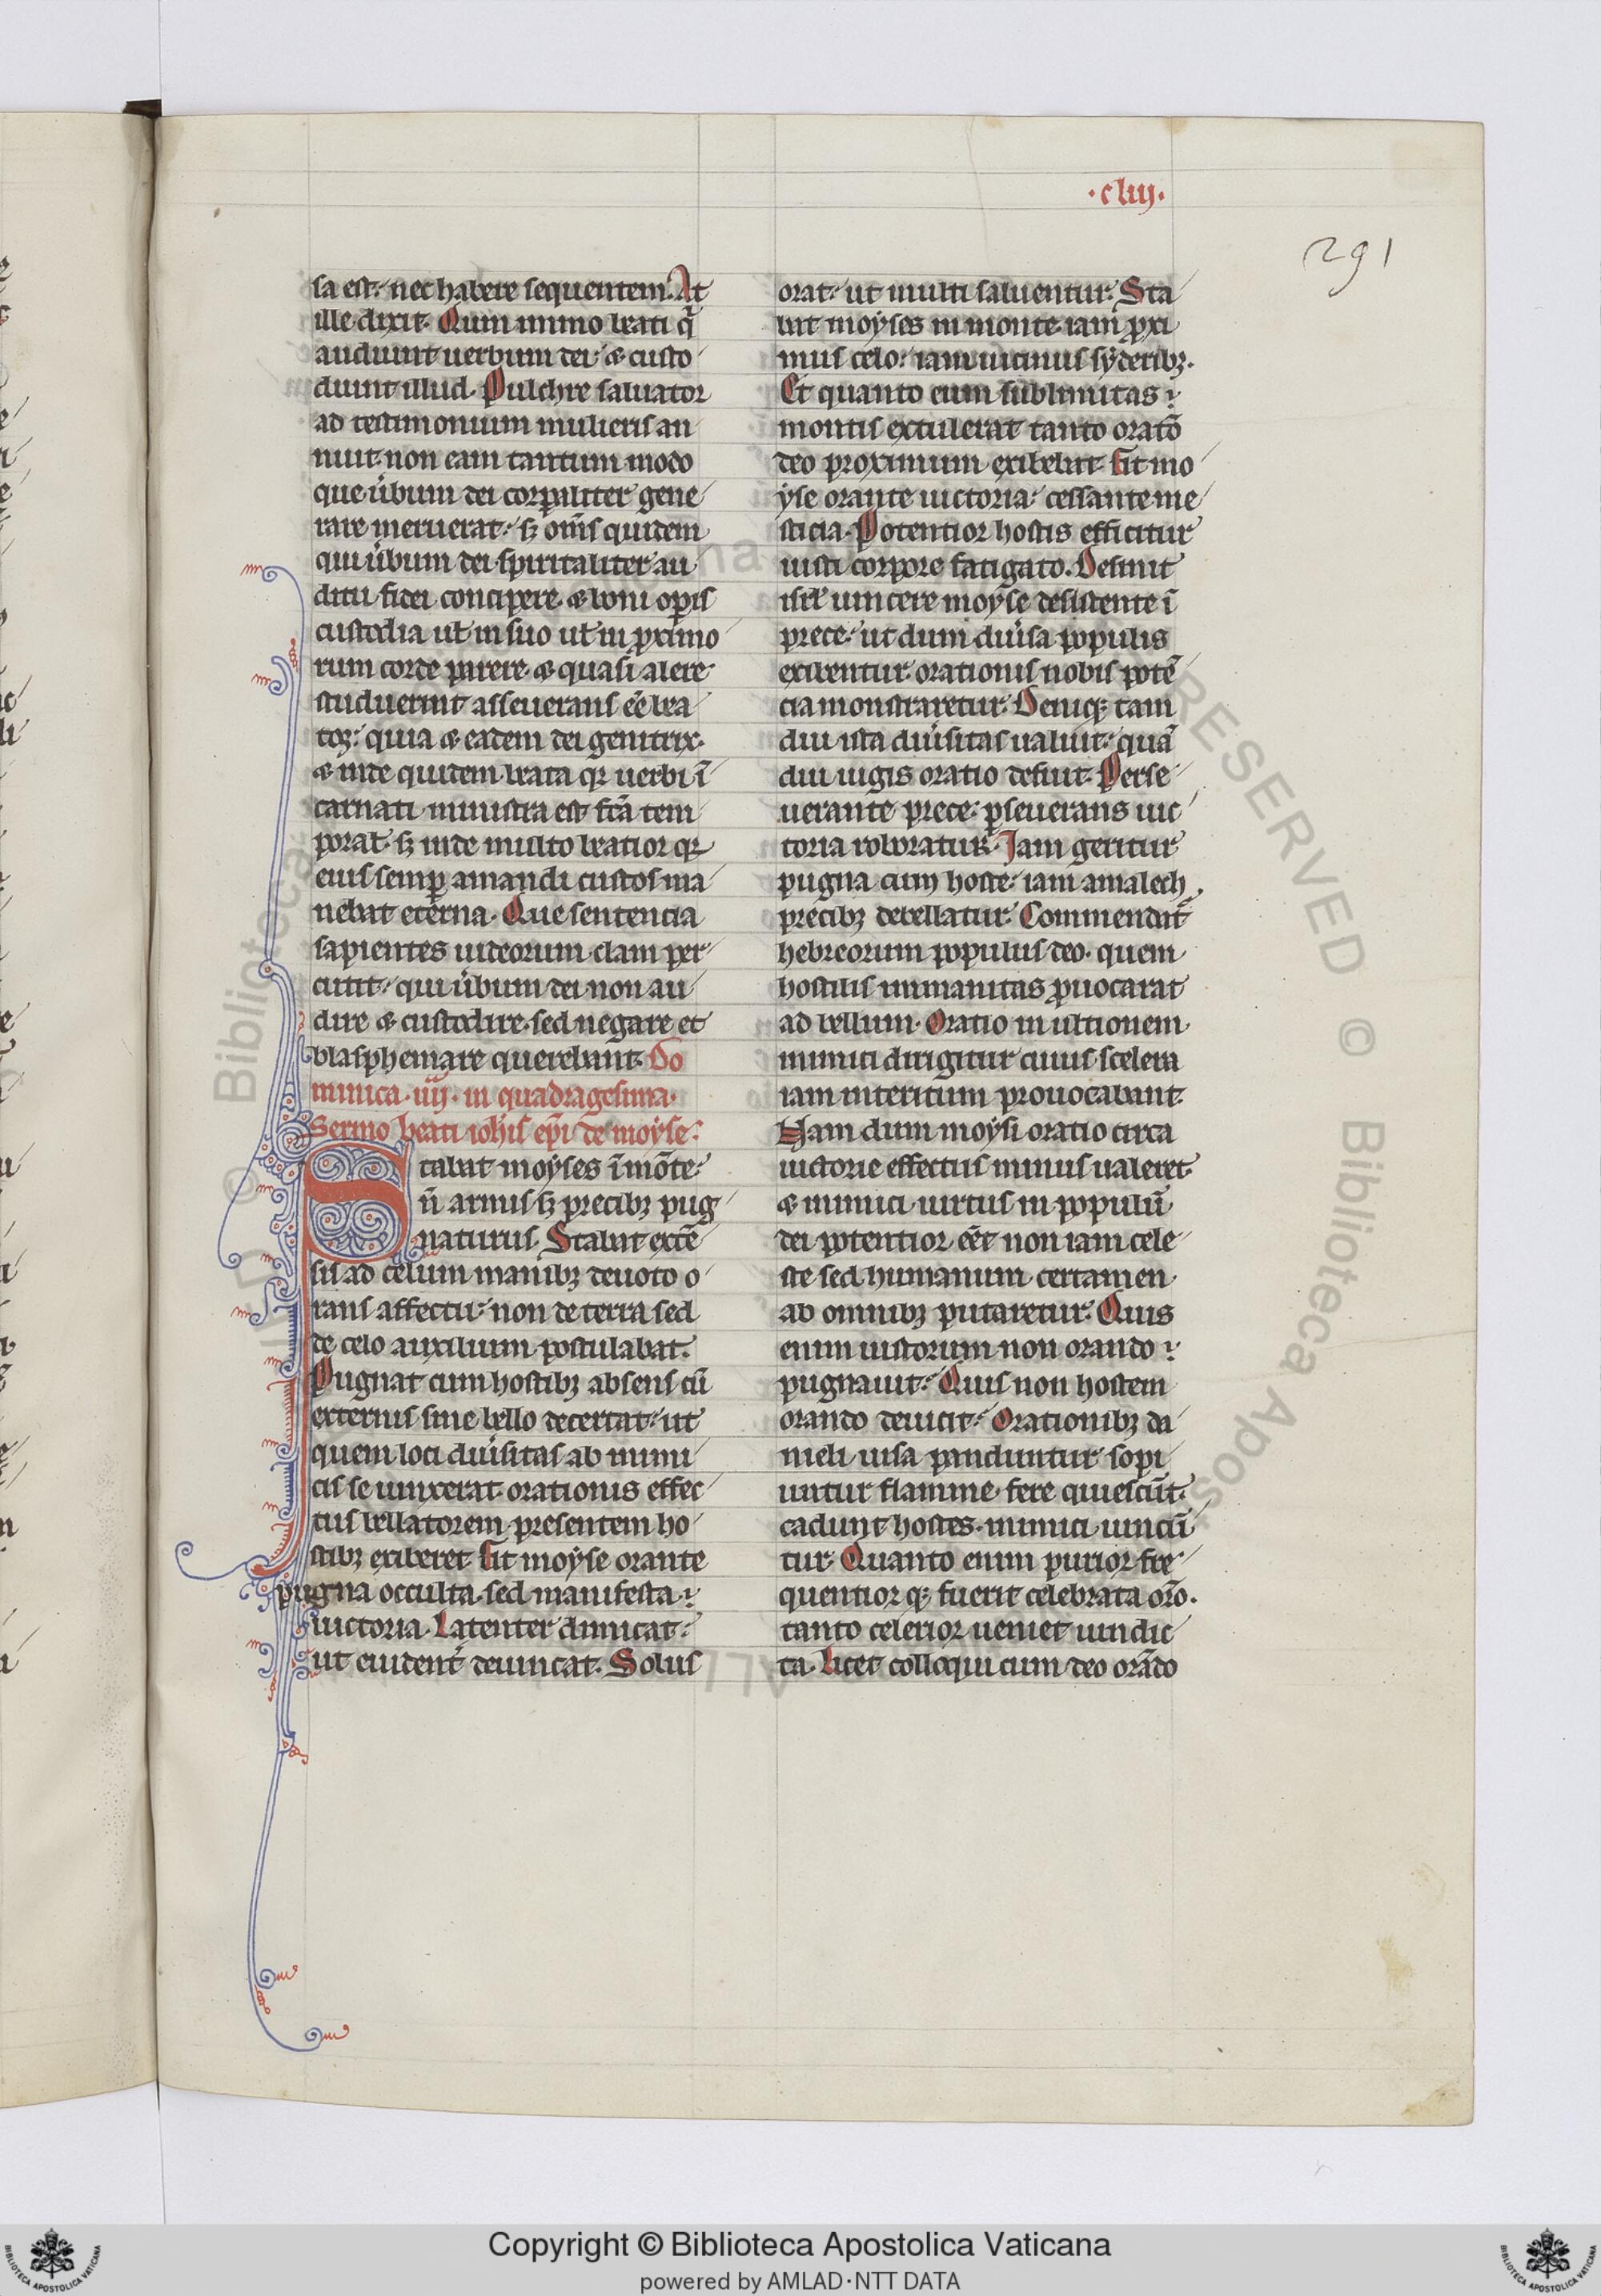 ·cliij·
291
sa est: nec habere sequentem. At
ille dixit. Quin immo beati qͥ
audiunt uerbum dei: ⁊ custo
diunt illud. Pulchre saluator
ad testimonium mulieris an
nuit. non eam tantum modo
que úbum dei corꝑaliter gene
rare meruerat: sꝫ om̅s quidem
qui úbum dei spiritaliter au
ditu fidei concipere. ⁊ boni oꝑis
custodia ut̄ in suo ut̄ in ꝓximo
rum corde parere. ⁊ quasi alere
studuerint asseuerans ee̅ bea
toꝫ: quia ⁊ eadem dei genitrix.
⁊ inde quidem beata qꝛ uerbi ī
carnati ministra est fc̄a tem
poral̄. sꝫ inde multo beatior qꝛ
eius semꝑ amandi custos ma
nebat eterna. Que sentencia
sapientes iudeorum clam per
cutit: qui úbum dei non au
dire ⁊ custodire. sed negare et
blasphemare querebant. Do
minica .iiij. in quadragesima.
Sermo beati ioh̄is ep̄i de moyse:
Stabat moyses ī mo̅te:
n̄ armis sꝫ precibꝫ pug
naturus. Stabat exte̅
sis ad celum manibꝫ deuoto o
rans affectu: non de terra sed
de celo auxilium postulabat.
Pugnat cum hostibꝫ absens cu̅
externis sine bello decertat: ut
quem loci diúsitas ab inimi
cis se iunxerat. orationis effec
tus bellatorem presentem ho
stibꝫ exiberet. Fit moyse orante
pugna occulta. sed manifesta
uictoria. Latenter dimicat:
ut euident̄ deuincat. Solus
orat: ut multi saluentur. Sta
bat moyses in monte. iam ꝓxi
mus celo: iam uicinus syderibꝫ.
Et quanto eum sublimitas
montis extulerat tanto orato̅
deo proximum exibebat. Fit mo
yse orante uictoria: cessante me
sticia. Potentior hostis efficitur
iusti corpore fatigato. Desinit
isrl̄ uincere moyse desistente ī
prece: ut dum diúsa populis
exibentur. orationis nobis pote̅
cia monstraretur. Deniqꝫ tam
diu ista diúsitas ualuit: qua̅
diu iugis oratio defuit. Perse
uerante prece: ꝑseuerans uic
toria roboratur. Iam geritur
pugna cum hoste: iam amalech
precibꝫ debellatur. Commendat̄
hebreorum populus deo. quem
hostilis inmanitas ꝓuocarat
ad bellum. Oratio in ultionem
inimici dirigitur cuius scelera
iam interitum prouocabant.
Nam dum moysi oratio circa
uictorie effectus minus ualeret.
⁊ inimici uirtus in populu̅
dei potentior ee̅t non iam cele
ste sed humanum certamen
ab omnibꝫ putaretur. Quis
enim iustorum non orando
pugnauit: Quis non hostem
orando deuicit: Orationibꝫ da
nieli uisa panduntur. sopi
untur flamme. fere quiescu̅t.
cadunt hostes. inimici uincu̅
tur. Quanto enim purior fre
quentior qꝫ fuerit celebrata or̅o.
tanto celerior ueniet uindic
ta. Licet colloqui cum deo ora̅do
Copyright © Biblioteca Apostolica Vaticana
powered by AMLAD·NTT DATA